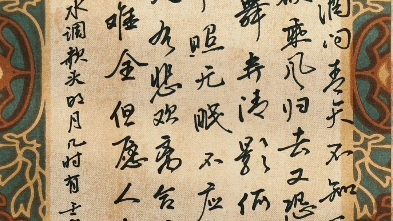 酒问青天不知
欲乘风归去又恐
舞弄清影何
照无眠不应
有悲欢离合
难全但愿人
水调歌头明月几时有